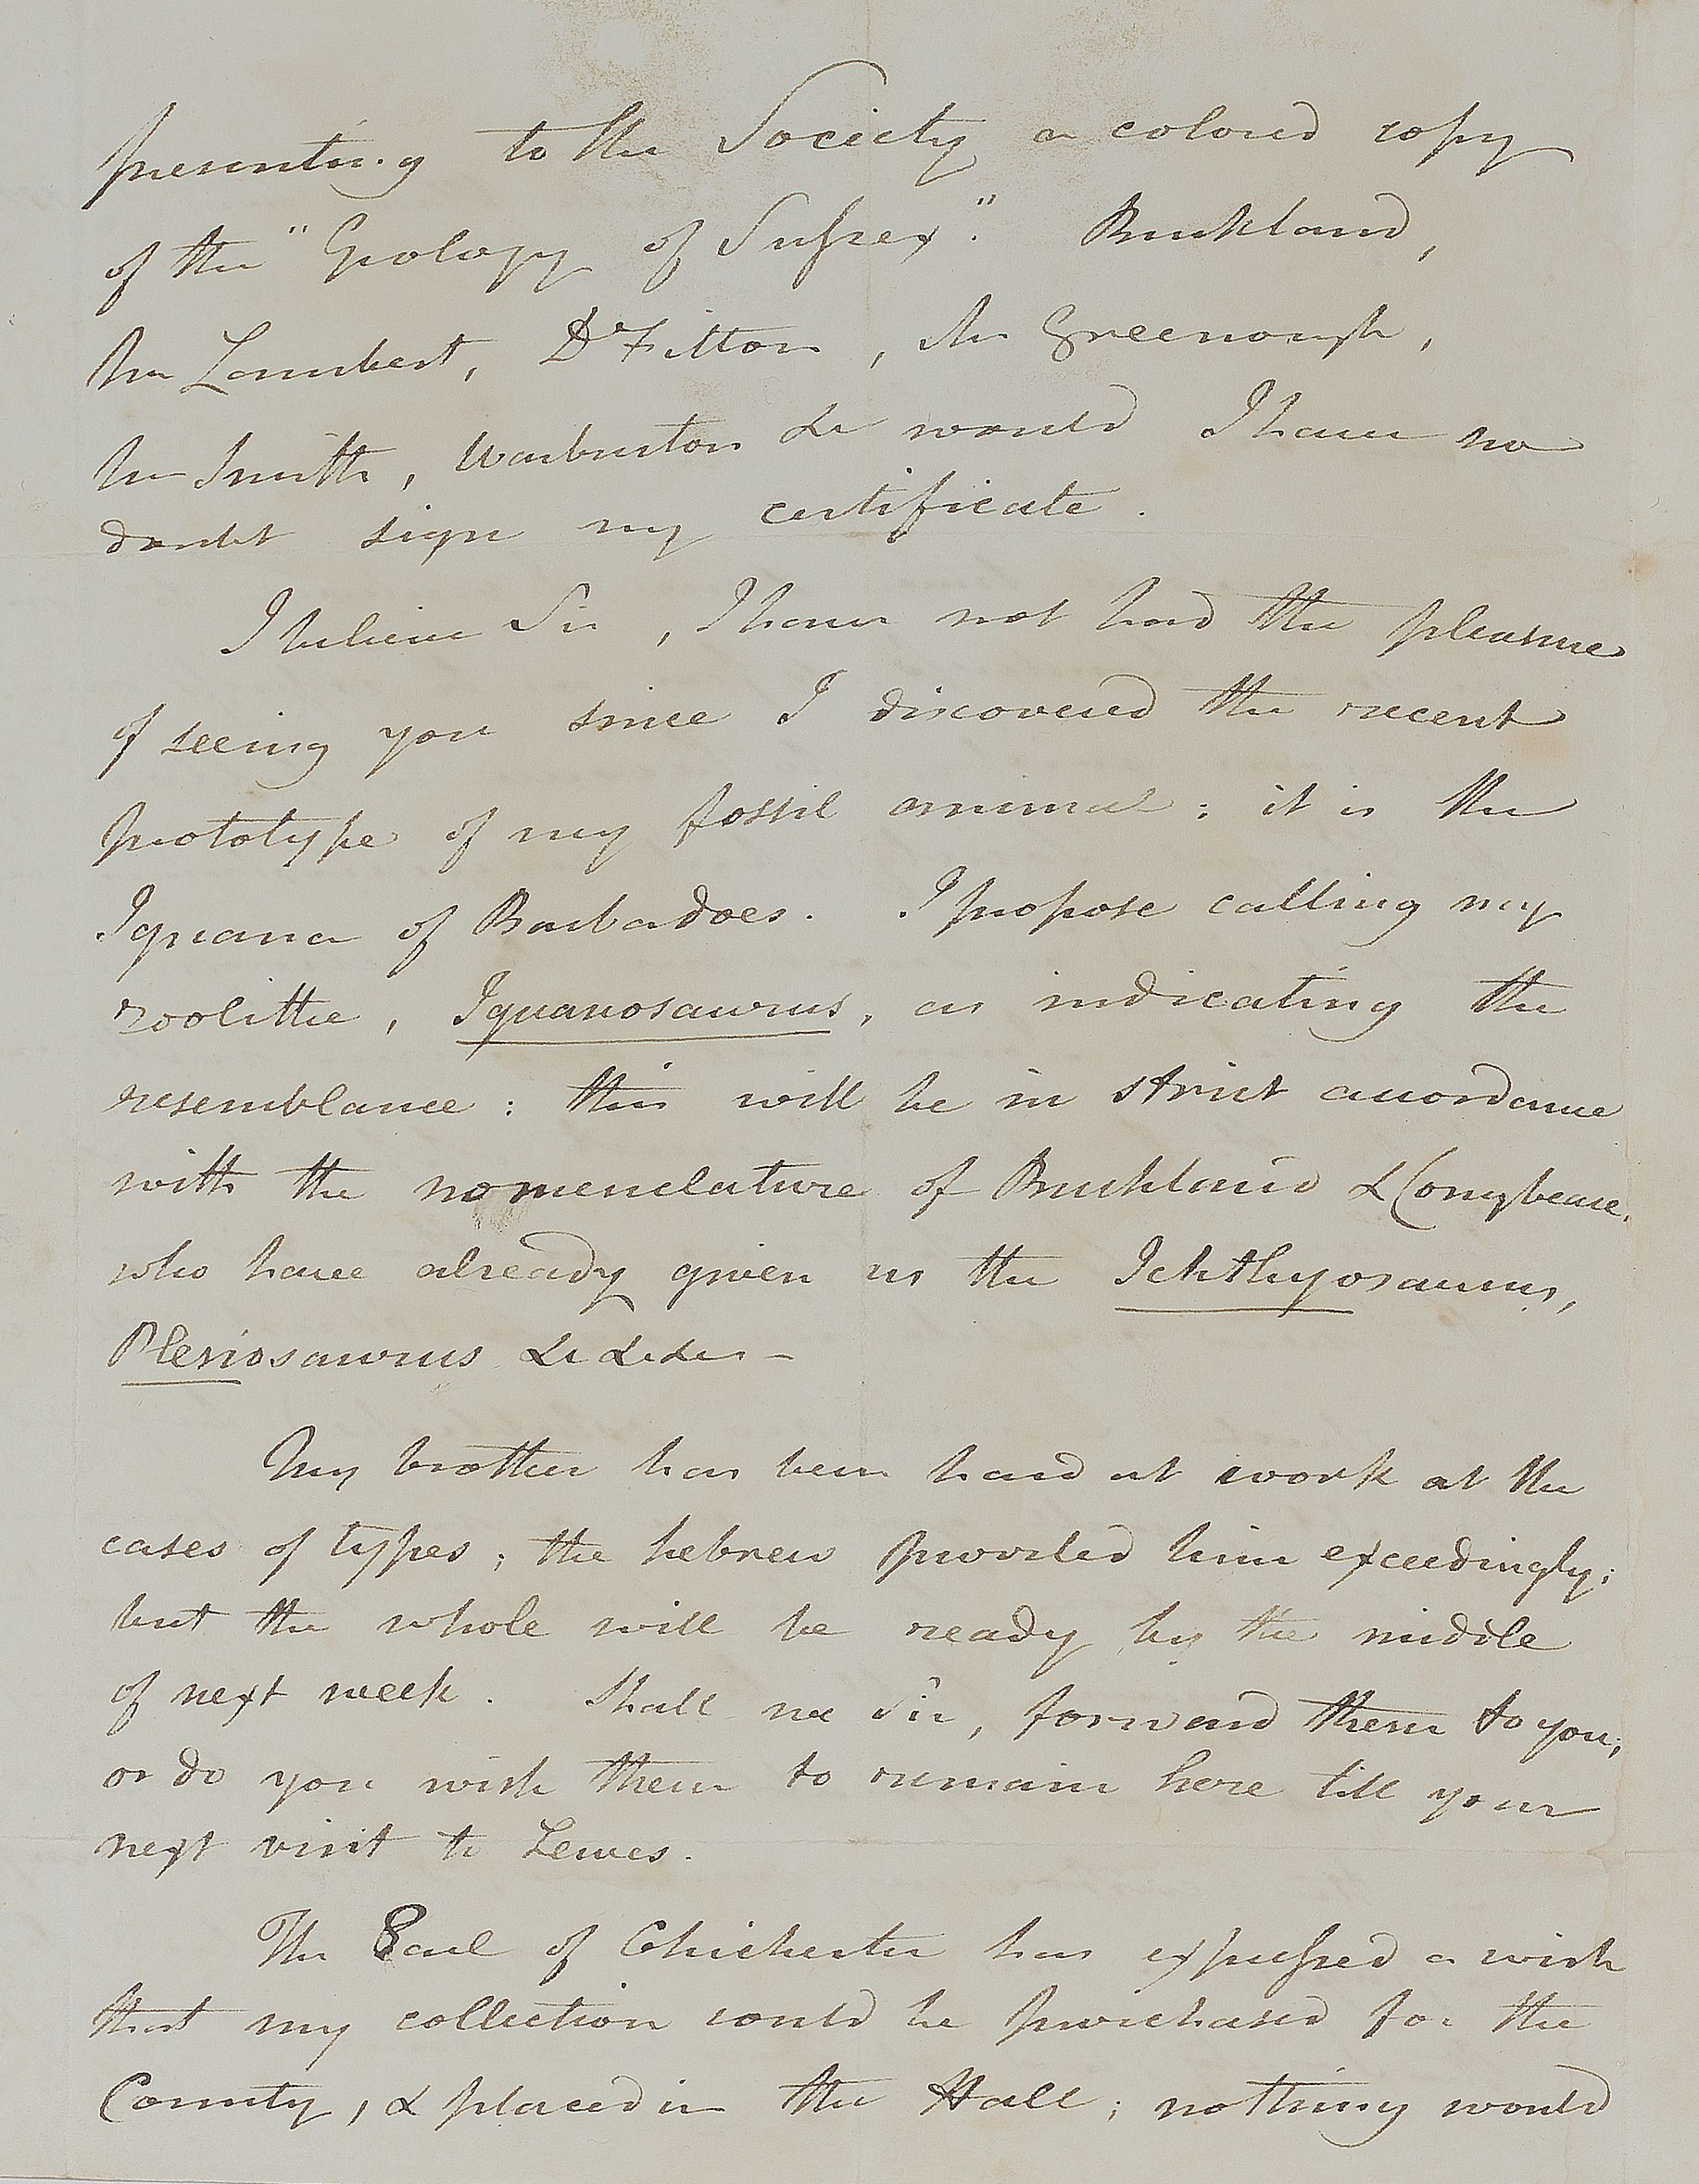 presenting to the Society a colored copy
of the "Geology of Sussex." Buckland,
Mr Lambert, Dr Fitton, Mr Greenough,
Mr Smith, Warburton &c would I have no
doubt sign my certificate.
I believe Sir, I have not had the pleasure
of seeing you since I discovered the recent
prototype of my fossil animal; it is the
Iguana of Barbadoes. I propose calling my
zoolithe, Iguanosaurus, as indicating the
resemblance: this will be in strict accordance
with the nomenclature of Buckland & Conybeare,
who have already given us the Ichthyosaurus,
Plesiosaurus &c &c &c –
My brother has been hard at work at the
cases of types; the hebrew puzzled him exceedingly;
but the whole will be ready by the middle
of next week. Shall we Sir, forward them to you;
or do you wish them to remain here till your
next visit to Lewes.
The Earl of Chichester has expressed a wish
that my collection could be purchased for the
County, & placed in the Hall; nothing would